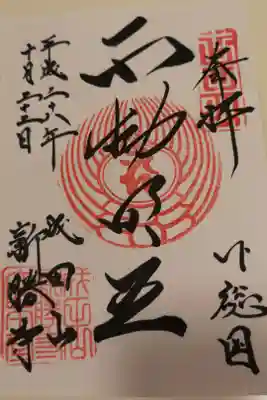 奉拝
下総国
不動明王
平成二十八年
十月二十三日
成田山
新勝寺